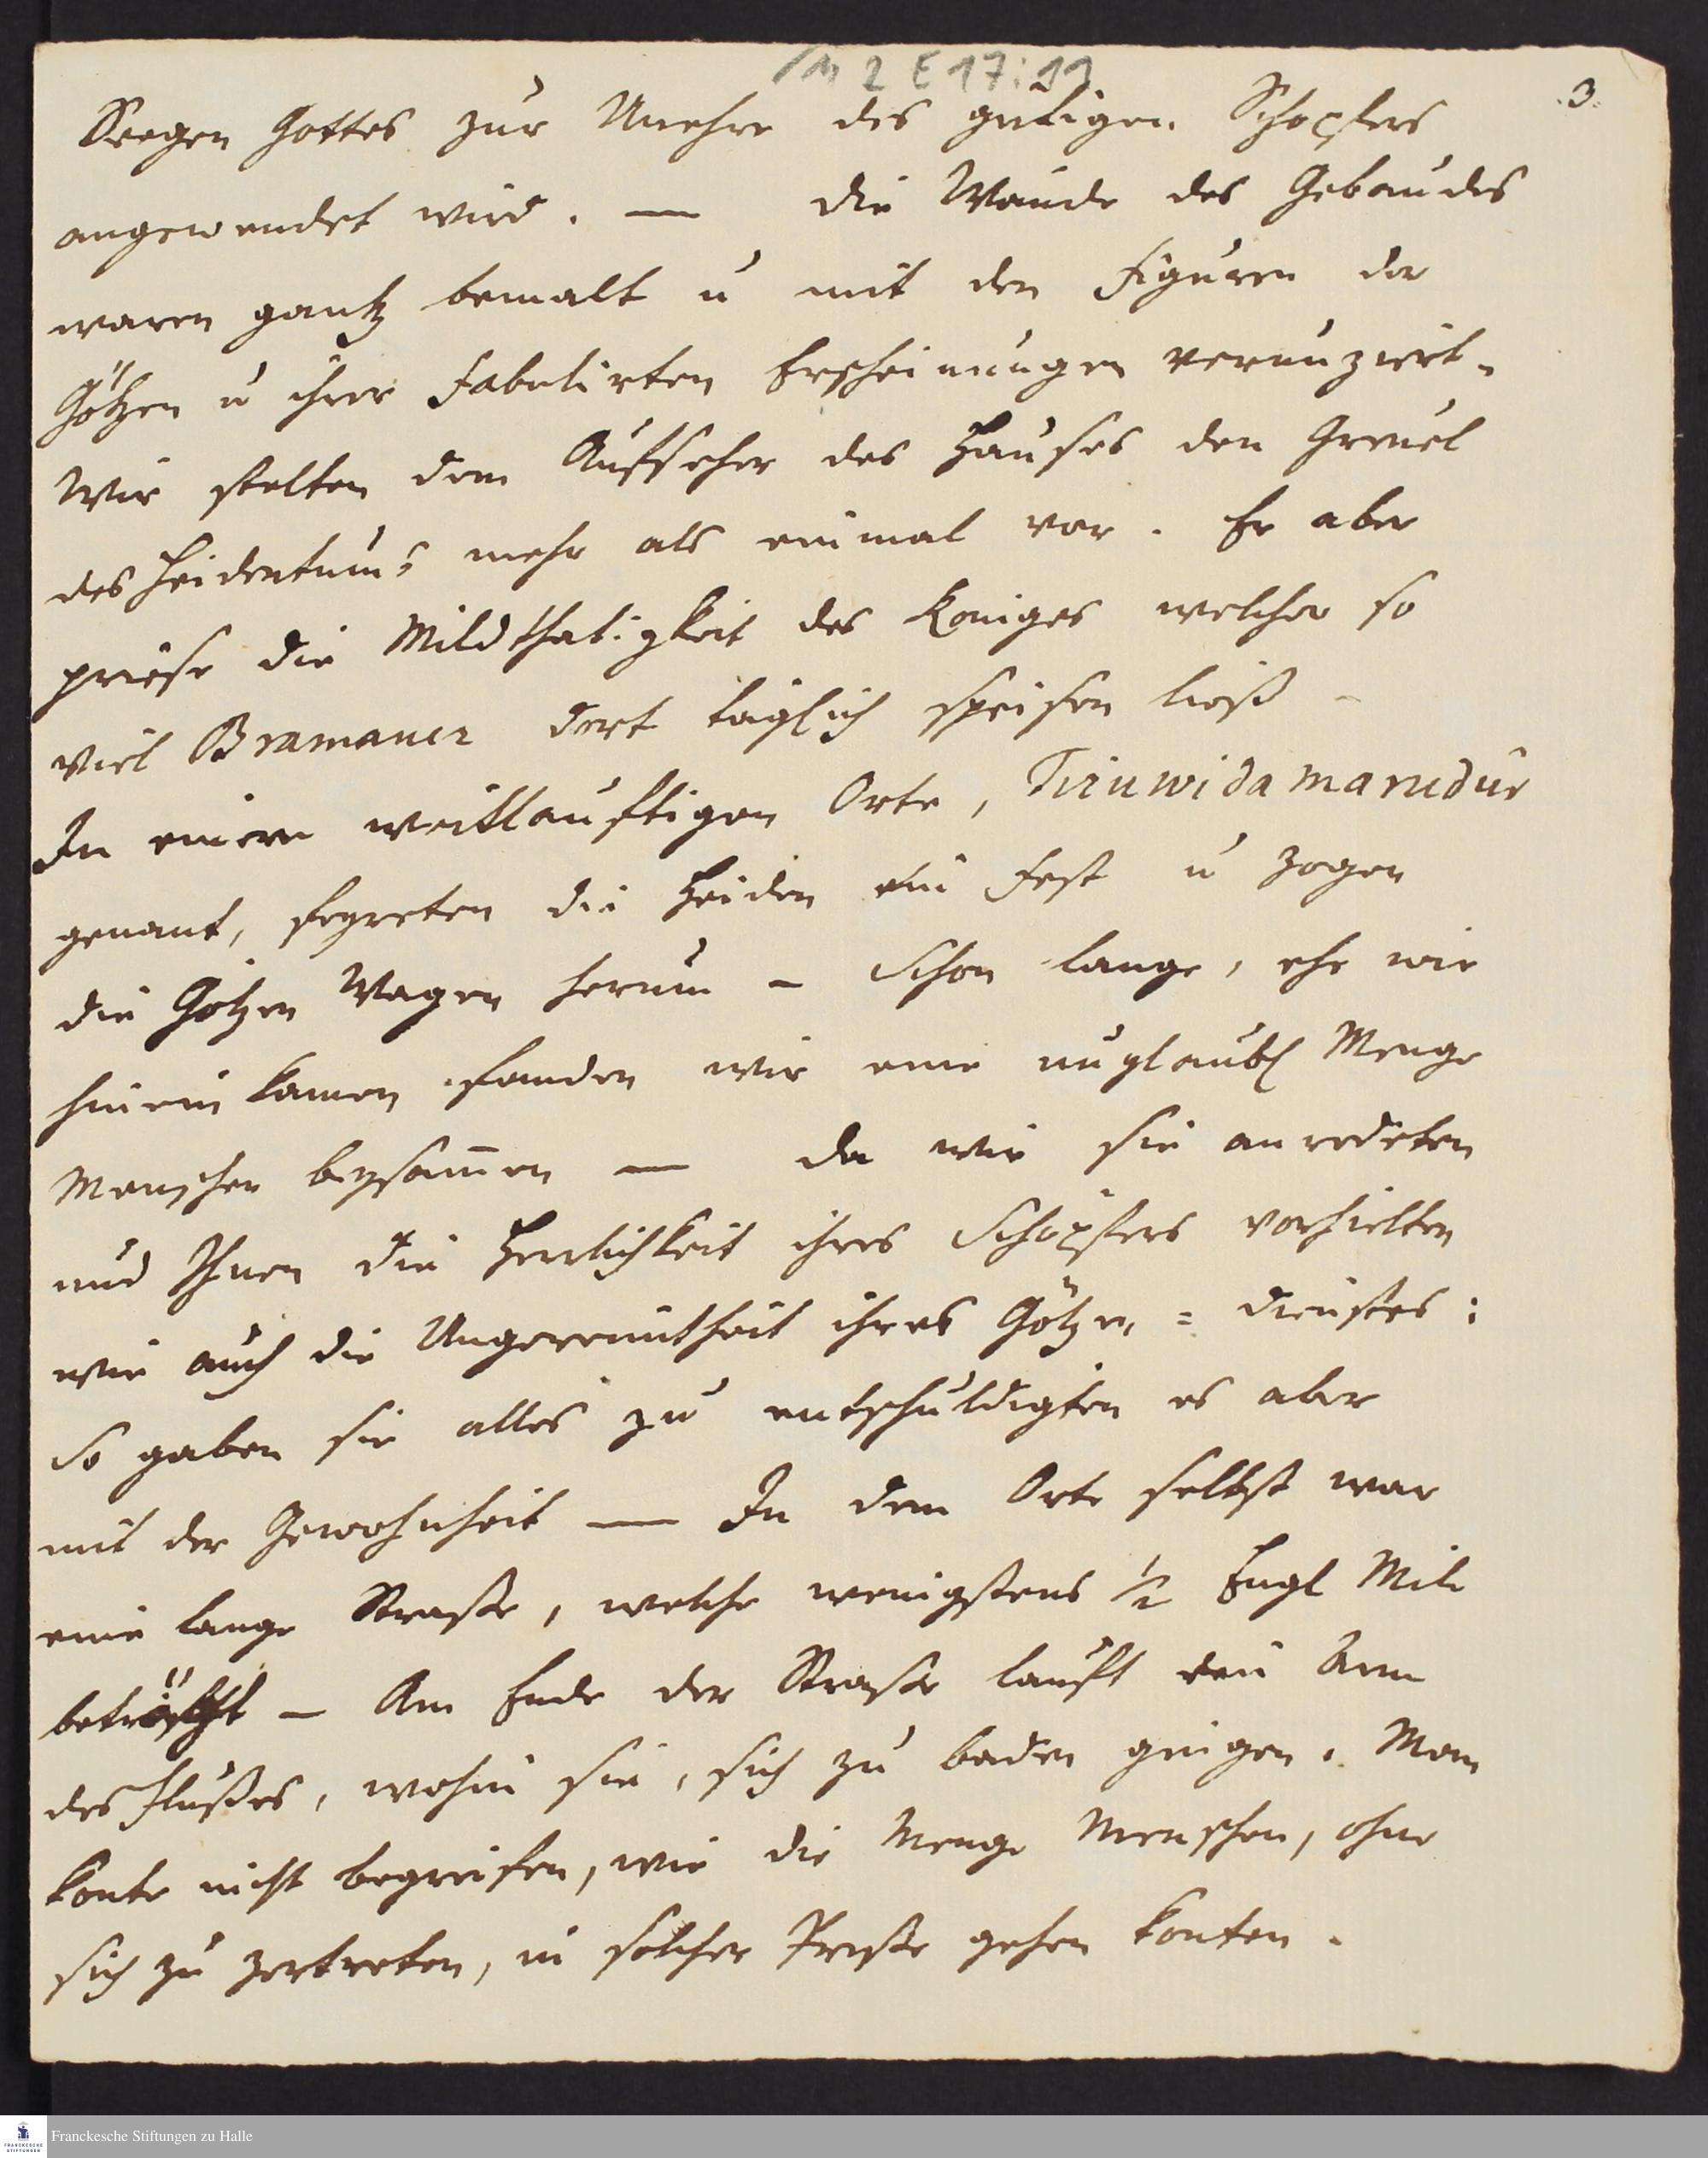 M 2 E 17:11
3.
Seegen Gottes zur Unehre des gütigen Schopfers
angewendet wird. — Die Wände des Gebaudes
waren gantz bemalt u mit den Figuren der
Götzen u ihrer fabulirten Erscheinungen verunziert.
Wir stelten dem Aufseher des Hauses den Greuel
des Heidentums mehr als einmal vor. Er aber
priese die Mildthatigkeit des Koniges welcher so
viel Bramaner dort täglich speisen ließ –
In einem weitlauftigen Orte, Tiruwidamarudur
genant, feyreten die Heiden ein Fest u zogen
die Götzen Wagen herum – Schon lange, ehe wir
hinein kamen fanden wir eine unglaubl Menge
Menschen beysam̄en — Da wir sie anredeten
und Ihnen die Herrlichkeit ihres Schöpfers vorhielten
wie auch die Ungereimtheit ihres Götzen = dienstes:
So gaben sie alles zu entschuldigten es aber
mit der Gewohnheit — In dem Orte selbst war
eine lange Straße, welche wenigstens 1/2 Engl Mile
– Am Ende der Straße lauft ein Arm
des Flußes, wohin sie, sich zu baden gingen. Man
konte nicht begreifen, wie die Menge Menschen, ohne
sich zu zertreten, in solcher Preße gehen konten.
Franckesche Stiftungen zu Halle
FRANCKESCHE
STIFTUNGEN